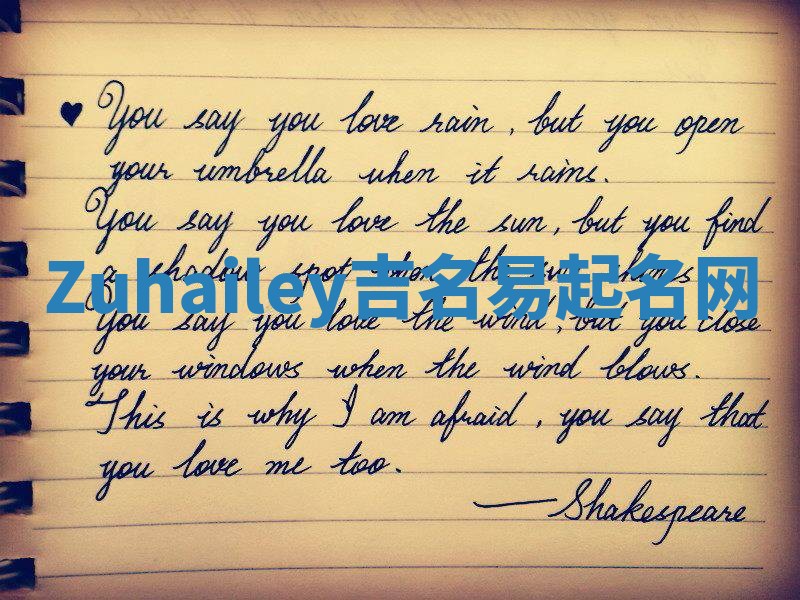 ♥ You say you love rain, but you open
your umbrella when it rains.
You say you love the sun, but you find
a shadow spot when the sun shines
Zuhailey吉名易起名网
You say you love the wind, but you close
your windows when the wind blows.
This is why I am afraid, you say that
you love me too.
—Shakespeare